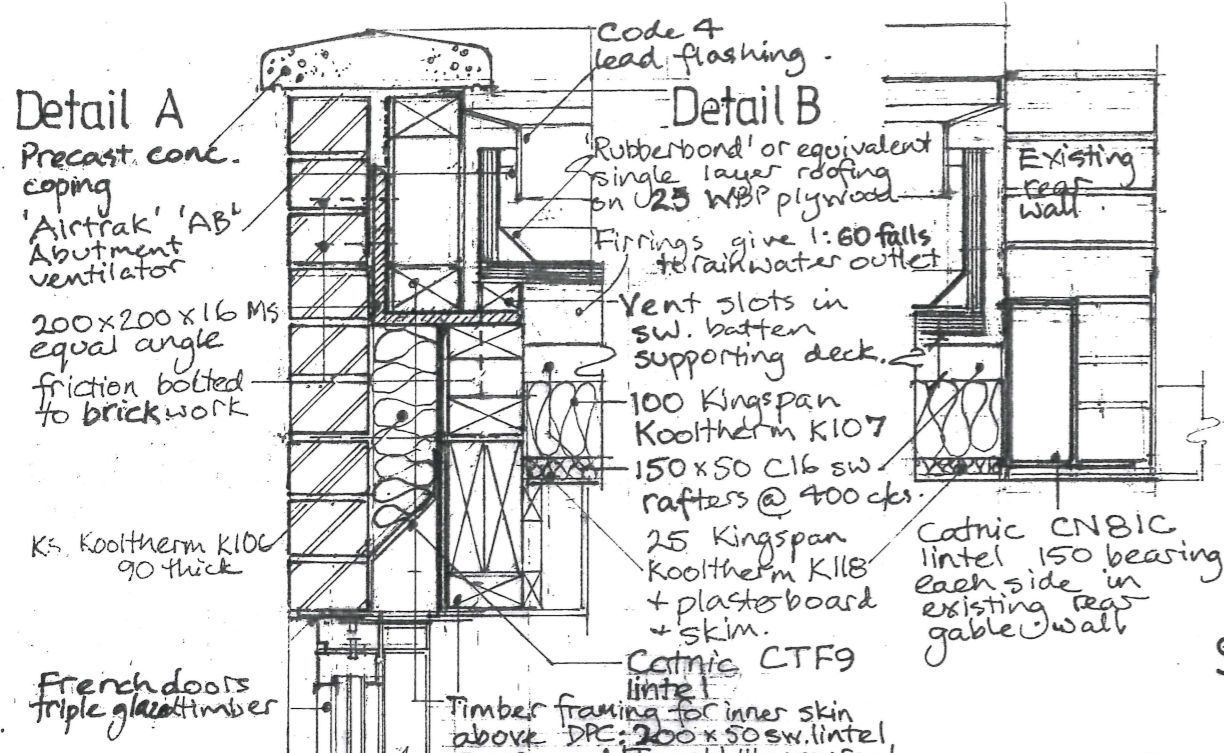 Detail A
Precast conc.
coping
'Airtrak' 'AB'
Abutment
ventilator
200x200x16 MS
equal angle
friction bolted
to brickwork
Ks Kooltherm K106
90 thick
French doors
triple glazed timber
Code 4
lead flashing.
Detail B
'Rubberbond' or equivalent
single layer roofing
on 25 WBP plywood
Firrings give 1:60 falls
to rainwater outlet
Vent slots in
sw. batten
supporting deck.
100 Kingspan
Kooltherm K107
150x50 C16 sw
rafters @ 400 c/cs.
25 Kingspan
Kooltherm K118
+ plasterboard
+ skim.
Catnic CTF9
lintel
Timber framing for inner skin
above DPC: 200 x 50 sw. lintel
Existing
rear
wall.
Catnic CN81C
lintel 150 bearing
each side in
existing rear
gable wall
S